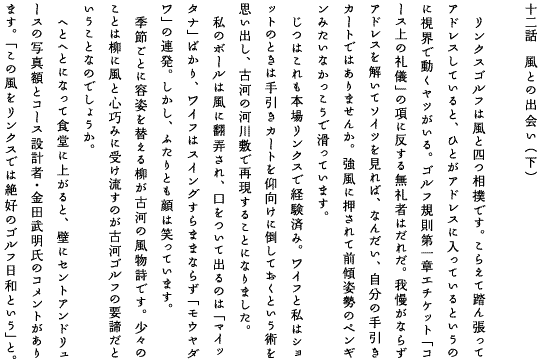 十二話　風との出会い（下）
　リンクスゴルフは風と四つ相撲です。こらえて踏ん張って
アドレスしていると、ひとがアドレスに入っているというの
に視界で動くヤツがいる。ゴルフ規則第一章エチケット「コ
ース上の礼儀」の項に反する無礼者はだれだ。我慢がならず
アドレスを解いてソイツを見れば、なんだい、自分の手引き
カートではありませんか。強風に押されて前傾姿勢のペンギ
ンみたいなかっこうで滑っています。
　じつはこれも本場リンクスで経験済み。ワイフと私はショ
ットのときは手引きカートを仰向けに倒しておくという術を
思い出し、古河の河川敷で再現することになりました。
　私のボールは風に翻弄され、口をついて出るのは「マイッ
タナ」ばかり、ワイフはスイングすらままならず「モウヤダ
ワ」の連発。しかし、ふたりとも顔は笑っています。
　季節ごとに容姿を替える柳が古河の風物詩です。少々の
ことは柳に風と心巧みに受け流すのが古河ゴルフの要諦だと
いうことなのでしょうか。
　へとへとになって食堂に上がると、壁にセントアンドリュ
ースの写真額とコース設計者・金田武明氏のコメントがあり
ます。「この風をリンクスでは絶好のゴルフ日和という」と。